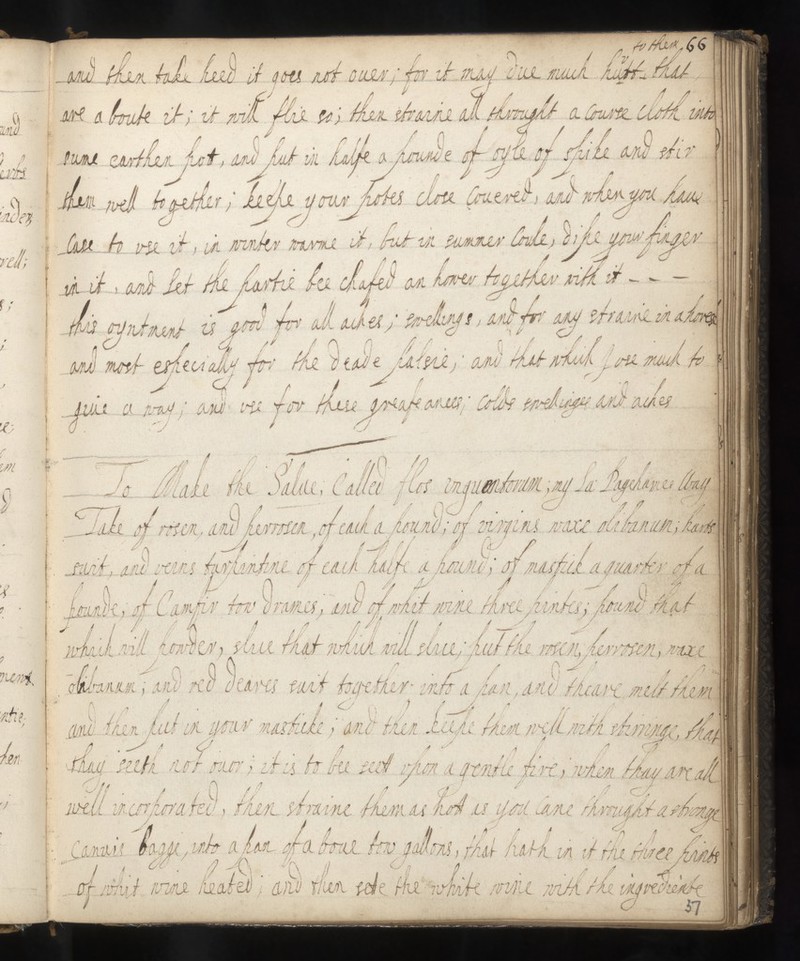 to them 66
and then take heed it goes not ouer; for it may due much hurt that
are aboute it; it will flie so; then straine all throught a course cloth into
sume earthen pot, and put in halfe a pounde of oyle of spike and stir
them well together; keepe your potes close couered, and when you haue
case to vse it, in winter warme it, but in summer coule, dipe your finger
in it, and let the partie bee chafed an hower together with it - - -
this oyntment is good for all aches; swellings, and for any straine in a horse
and most especially for the deade palsie; and that which I vse much to
giue a way; and vse for these greafeances; colds swellinges and aches
To Make the Salue, Called flos inguentorum; my La: Way
Take of rosen, and perrosen, of each a pound; of virgins waxe olibanum; harts
suit, and veins turpintine of each halfe a pound; of mastick a quarter of a
pounde; of Camfir tow drames; and of whit wine three pintes; pound that
which will powder, slice that which will slice; put the rosen, perrosen, waxe
olibanum; and red deares suit together into a pan, and theare melt them
and then put in your masticke; and then keepe them well with stirringe, that
thay seeth not ouor; it is to bee sett vpon a gentle fire; when thay are all
well incorporated, then straine them as hott as you cane throught a stronge
canuis bagge, into a pan of a boue tow gallons, that hath in it the three pints
of whit wine heated; and then sete the white wine with the ingrediente
57